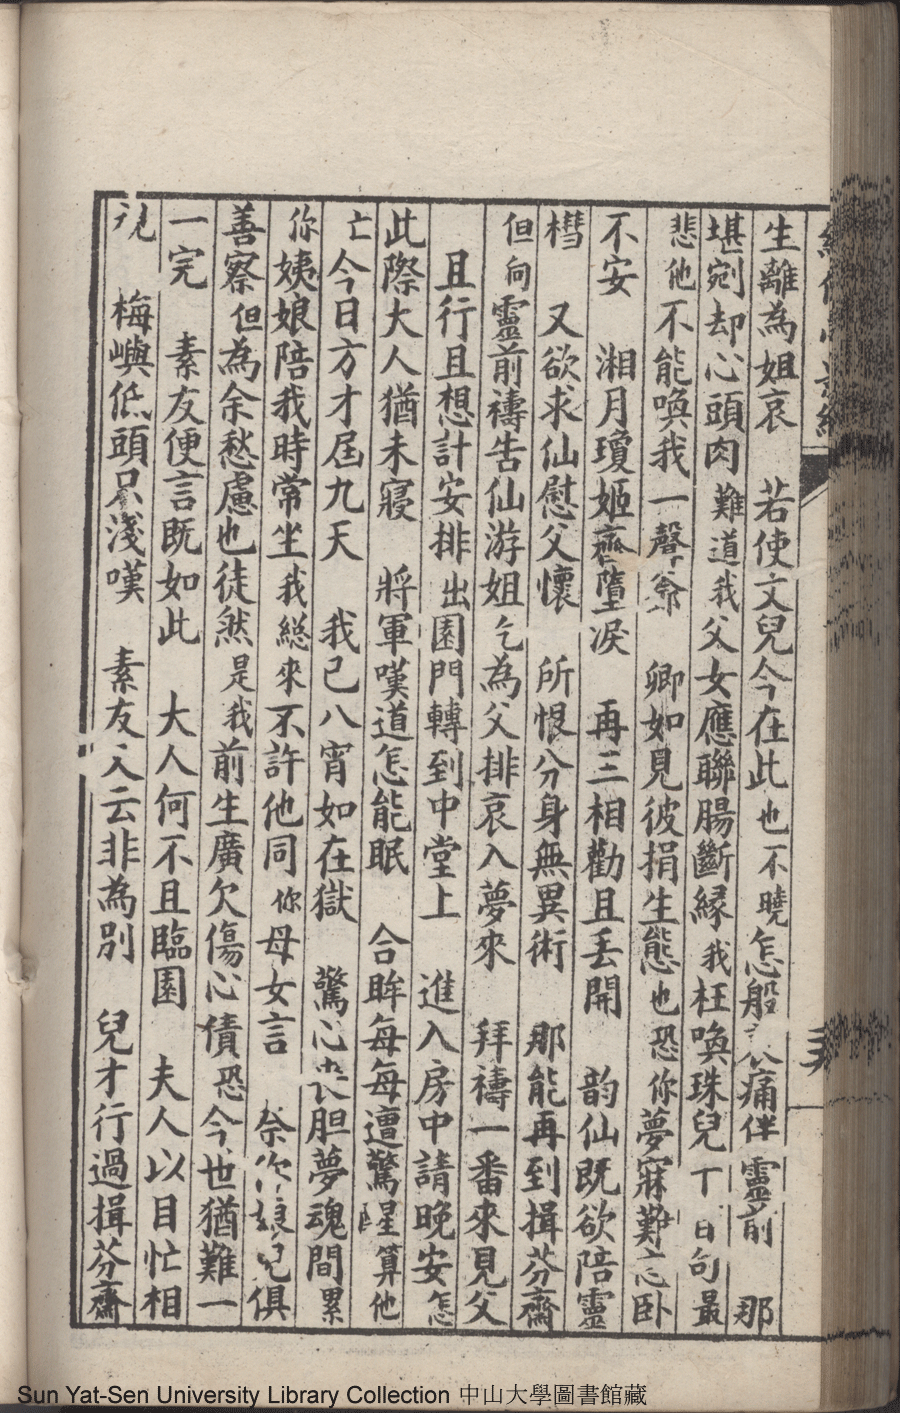 生離為姐哀 若使文兒今在此也不曉怎般 痛伴靈前 那
堪剜却心頭肉 難道我父女應聯腸斷緣我枉喚珠兒 日句最
悲他不能喚我一聲爺 卿如見彼捐生態也恐你夢寐難忘臥
不安 湘月瓊姬齊墮淚 再三相勸且丟開 韵仙既欲陪靈
櫘 又欲求仙慰父懷 所恨分身無異術 那能再到揖芬齋
但向靈前禱告仙游姐乞為父排哀入夢來 拜禱一番來見父
且行且想計安排出園門轉到中堂上 進入房中請晚安怎
此際大人猶未寢 將軍嘆道怎能眠 合眸每每遭驚醒算他
亡今日方才屆九天 我已八宵如在獄 驚心 胆夢魂間累
你姨娘陪我時常坐我總來不許他同你母女言 俱
善察但為余愁慮也徒然是我前生廣欠傷心債恐今世猶難一
一完 素友便言既如此 大人何不且臨園 夫人以目忙相
視 梅嶼低頭只淺嘆 素友又云非為別 兒才行過揖芬齋
Sun Yat-Sen University Library Collection 中山大學圖書館藏